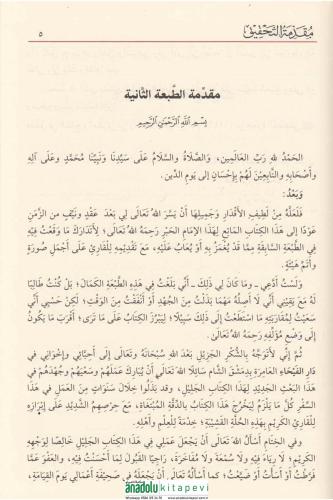 مُقَدِّمَةُ التَّحْقِيقِ
٥
مقدّمة الطّبعة الثّانية
بِسْمِ اللَّهِ الرَّحْمَنِ الرَّحِيمِ
الحَمْدُ للهِ رَبِّ العَالَمِين، وَالصَّلَاةُ وَالسَّلَامُ عَلَى سَيِّدِنَا وَنَبِيِّنَا مُحَمَّدٍ وَعَلَى آلِهِ
وَأَصْحَابِهِ وَالتَّابِعِينَ لَهُمْ بِإِحْسَانٍ إِلَى يَوْمِ الدِّين.
وَبَعْدُ:
فَلَعَلَّهُ مِنْ لَطِيفِ الأَقْدَارِ وَجَمِيلِهَا أَنْ يَسَّرَ اللهُ تَعَالَى لِي بَعْدَ عَقْدٍ وَنَيِّفٍ مِنَ الزَّمَنِ
عَوْدًا إِلَى هَذَا الكِتَابِ المَاتِعِ لِهَذَا الإِمَامِ الحَبْرِ رَحِمَهُ اللهُ تَعَالَى؛ لِأَتَدَارَكَ مَا وَقَعْتُ فِيهِ
فِي الطَّبْعَةِ السَّابِقَةِ مِمَّا قَدْ يُغْمَزُ بِهِ أَوْ يُعَابُ عَلَيْهِ، مَعَ تَقْدِيمِهِ لِلْقَارِئِ عَلَى أَجْمَلِ صُورَةٍ
وَأَتَمِّ هَيْئَةٍ.
وَلَسْتُ أَدَّعِي ـ وَمَا كَانَ لِي ذَلِكَ ـ أَنِّي بَلَغْتُ فِي هَذِهِ الطَّبْعَةِ الكَمَالَ؛ بَلْ كُنْتُ طَالِبًا
لَهُ مَعَ يَقِينِي أَنِّي لَا أَصِلُهُ مَهْمَا بَذَلْتُ مِنَ الجُهْدِ أَوْ أَنْفَقْتُ مِنَ الوَقْتِ؛ لَكِنْ حَسْبِي أَنِّي
سَعَيْتُ لِمُقَارَبَتِهِ مَا اسْتَطَعْتُ إِلَى ذَلِكَ سَبِيلًا؛ لِيَبْرُزَ الكِتَابُ عَلَى مَا تَرَى؛ أَقْرَبَ مَا يَكُونُ
إِلَى وَضْعِ مُؤَلِّفِهِ رَحِمَهُ اللهُ تَعَالَى.
ثُمَّ إِنِّي لَأَتَوَجَّهُ بِالشُّكْرِ الجَزِيلِ بَعْدَ اللهِ سُبْحَانَهُ وَتَعَالَى إِلَى أَحِبَّائِي وَإِخْوَانِي فِي
دَارِ الفَيْحَاءِ العَامِرَةِ بِدِمَشْقَ الشَّامِ سَائِلًا اللهَ تَعَالَى أَنْ يُبَارِكَ عَمَلَهُمْ وَسَعْيَهُمْ وَجُهْدَهُمْ فِي
هَذَا البَعْثِ الجَدِيدِ لِهَذَا الكِتَابِ الجَلِيلِ، وَقَدْ بَذَلُوا خِلَالَ سَنَوَاتٍ مِنَ العَمَلِ فِي هَذَا
السِّفْرِ كُلَّ مَا يَلْزَمُ لِيَخْرُجَ هَذَا الكِتَابُ بِالدِّقَّةِ المُبْتَغَاةِ، مَعَ حِرْصِهِمُ الشَّدِيدِ عَلَى إِبْرَازِهِ
لِلْقَارِئِ الكَرِيمِ بِهَذِهِ الحُلَّةِ القَشِيبَةِ؛ خِدْمَةً لِلْعِلْمِ وَأَهْلِهِ.
وَفِي الخِتَامِ أَسْأَلُ اللهَ تَعَالَى أَنْ يَجْعَلَ عَمَلِي فِي هَذَا الكِتَابِ الجَلِيلِ خَالِصًا لِوَجْهِهِ
الكَرِيمِ؛ لَا رِيَاءً فِيهِ وَلَا سُمْعَةً وَلَا مُفَاخَرَةً، رَاجِيًا القَبُولَ لِمَا أَحْسَنْتُ فِيهِ، وَالعَفْوَ عَمَّا
فَرَّطْتُ أَوْ أَسَأْتُ أَوْ ضَيَّعْتُ؛ كَمَا أَسْأَلُهُ تَعَالَى أَنْ يَجْعَلَهُ فِي صَحِيفَةِ أَعْمَالِي يَوْمَ القِيَامَةِ،
anadolukitapevi